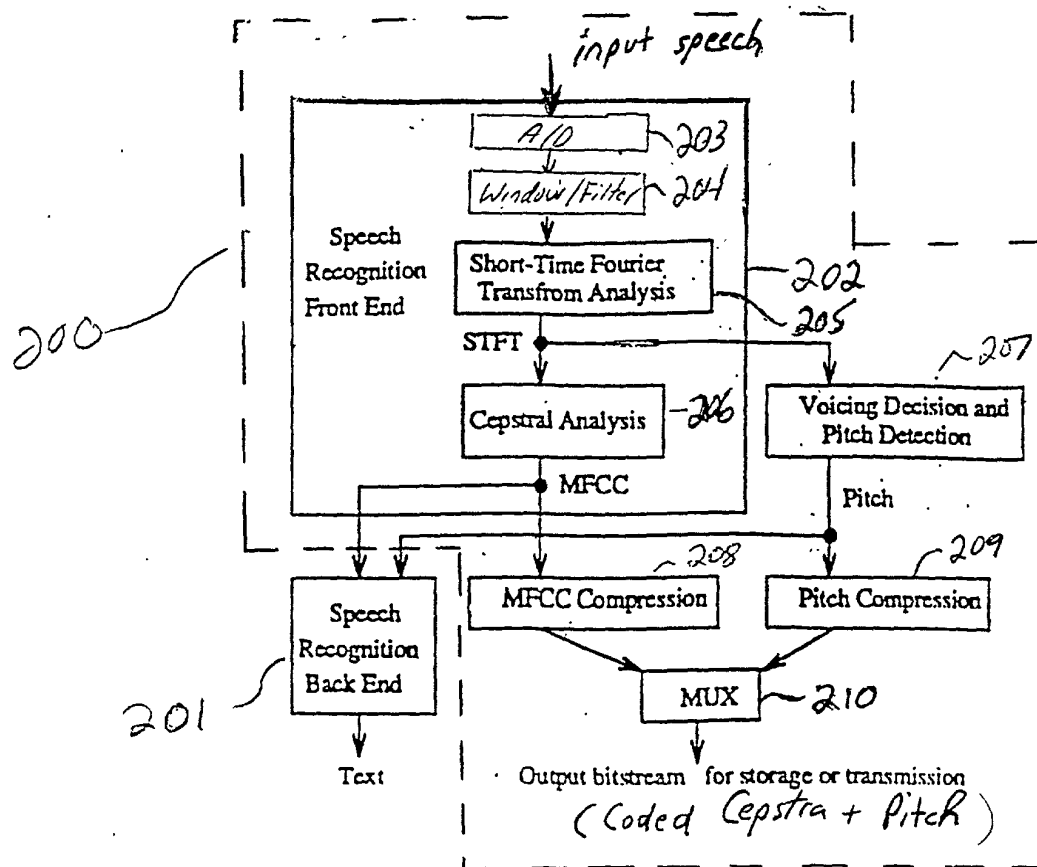 input speech
A/D
203
Window/Filter
204
Speech
Recognition
Front End
Short-Time Fourier
Transfrom Analysis
202
205
200
STFT
207
Cepstral Analysis
206
Voicing Decision and
Pitch Detection
MFCC
Pitch
208
209
Speech
Recognition
Back End
MFCC Compression
Pitch Compression
201
MUX
210
Text
Output bitstream for storage or transmission
(Coded Cepstra + Pitch)